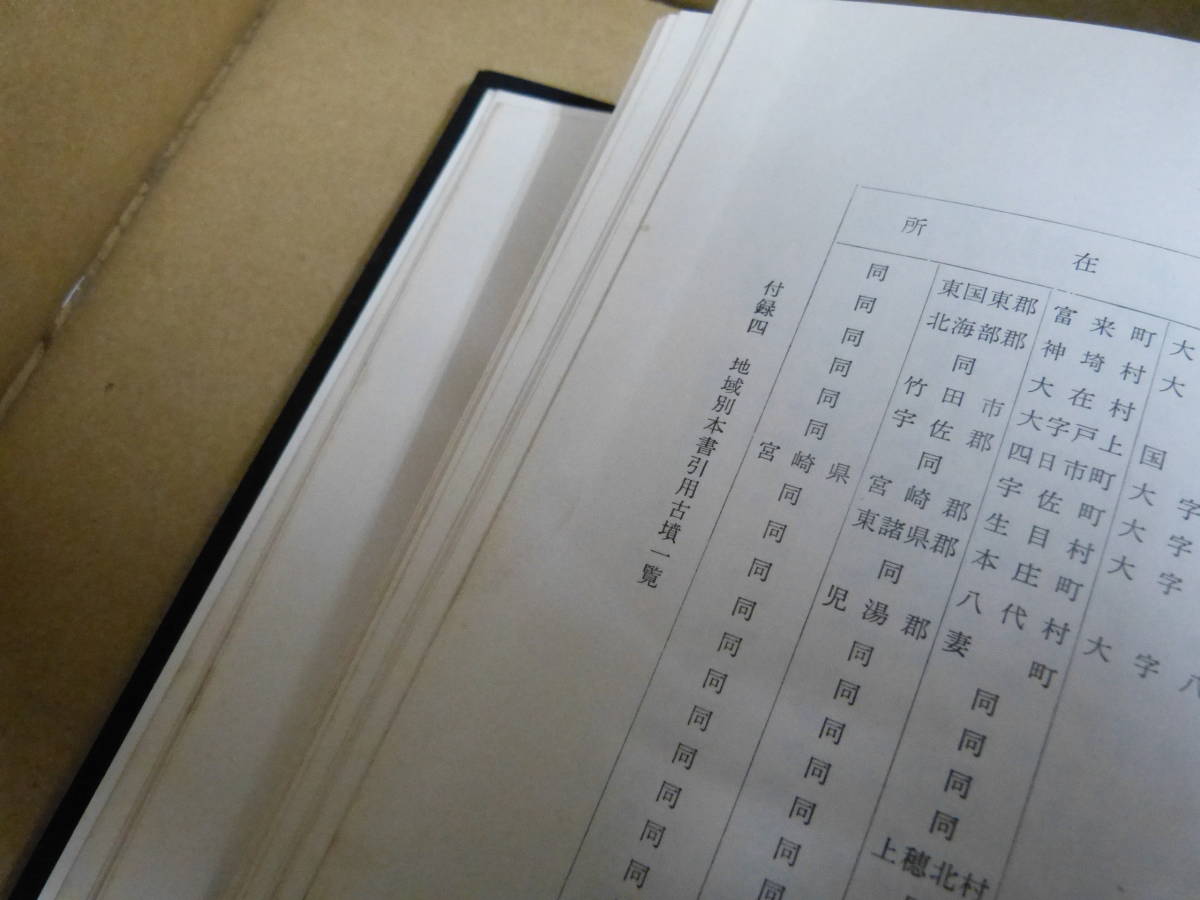 所在
同 東国東郡 富来町 大
同 北海部郡 神埼村 大
同 同 大在村
同 竹田市 大字戸上 国
同 宇佐郡 四日市町 大字
同 同 宇佐町 大字
宮崎県 宮崎郡 生目村 大字
同 東諸県郡 本庄町
同 同 八代村 大字八
同 児湯郡 妻町
同 同 同
同 同 同
同 同 同
同 同 同
同 同 上穂北村
同 同
同 同
同
付録四 地域別本書引用古墳一覧